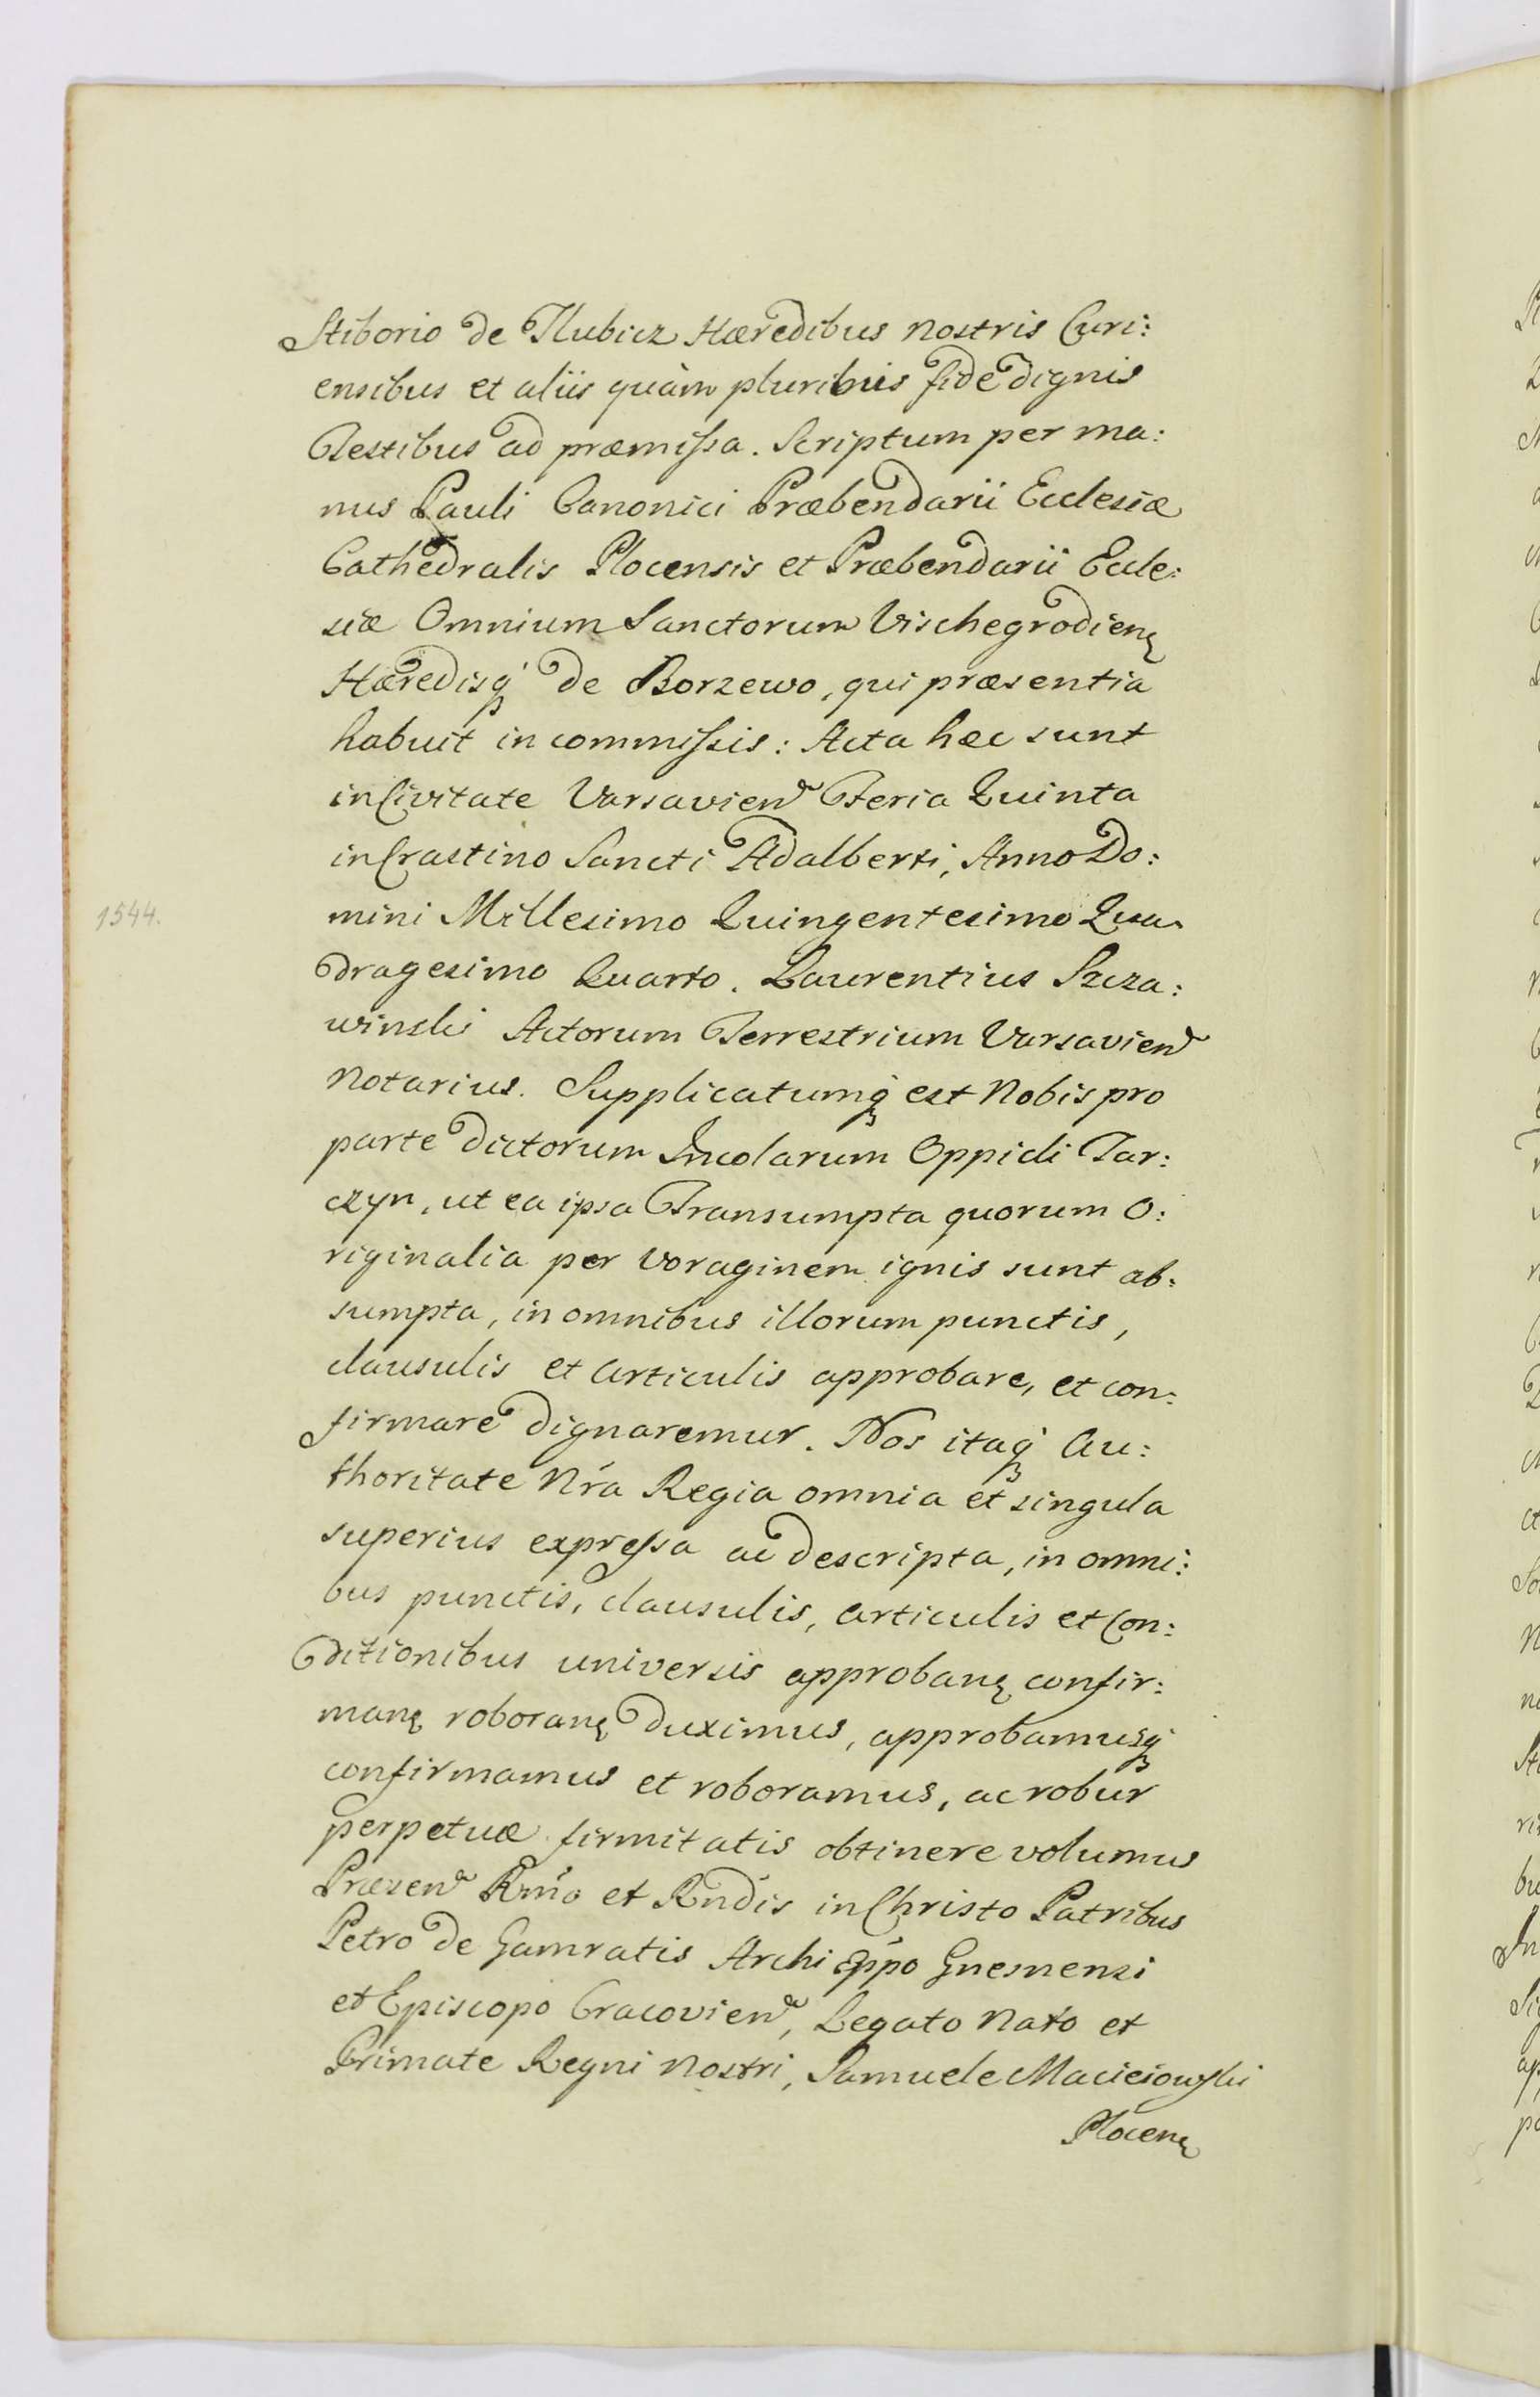 Stiborio de Tlubicz Hæredibus nostris Curi:
ensibus et aliis quàm pluribus fide dignis
Testibus ad præmissa. Scriptum per ma:
nus Pauli Canonici Præbendarii Ecclesiæ
Cathedralis Plocensis et Præbendarii Eccle:
siæ Omnium Sanctorum Vischegrodien̄
Hæredisq̣ de Borzewo, qui præsentia
habuit in commissis: Acta hæc sunt
in Civitate Varsavien̄ Feria Quinta
in Crastino Sancti Adalberti, Anno Do:
1544.
mini Millesimo Quingentesimo Qua
dragesimo Quarto. Laurentius Szcza:
winski Actorum Terrestrium Varsavien̄
Notarius. Supplicatumq̣ est Nobis pro
parte dictorum Incolarum Oppidi Tar:
czyn, ut ea ipsa Transumpta quorum O:
riginalia per voraginem ignis sunt ab:
sumpta, in omnibus illorum punctis,
clausulis et articulis approbare, et con:
firmare dignaremur. Nos itaq̣ Au:
thoritate Nr̃a Regia omnia et singula
superius expressa ac descripta, in omni:
bus punctis, clausulis, articulis et Con:
ditionibus universis approban̄ confir:
man̄ roboran̄ duximus, approbamusq̣
confirmamus et roboramus, ac robur
perpetuæ firmitatis obtinere volumus
Præsen̄ Rm̃o et Rndis in Christo Patribus
Petro de Gamratis Archi Ep̃po Gnesnensi
et Episcopo Cracovien̄, Legato Nato et
Primate Regni Nostri, Samuele Macieiowski
Plocen̄